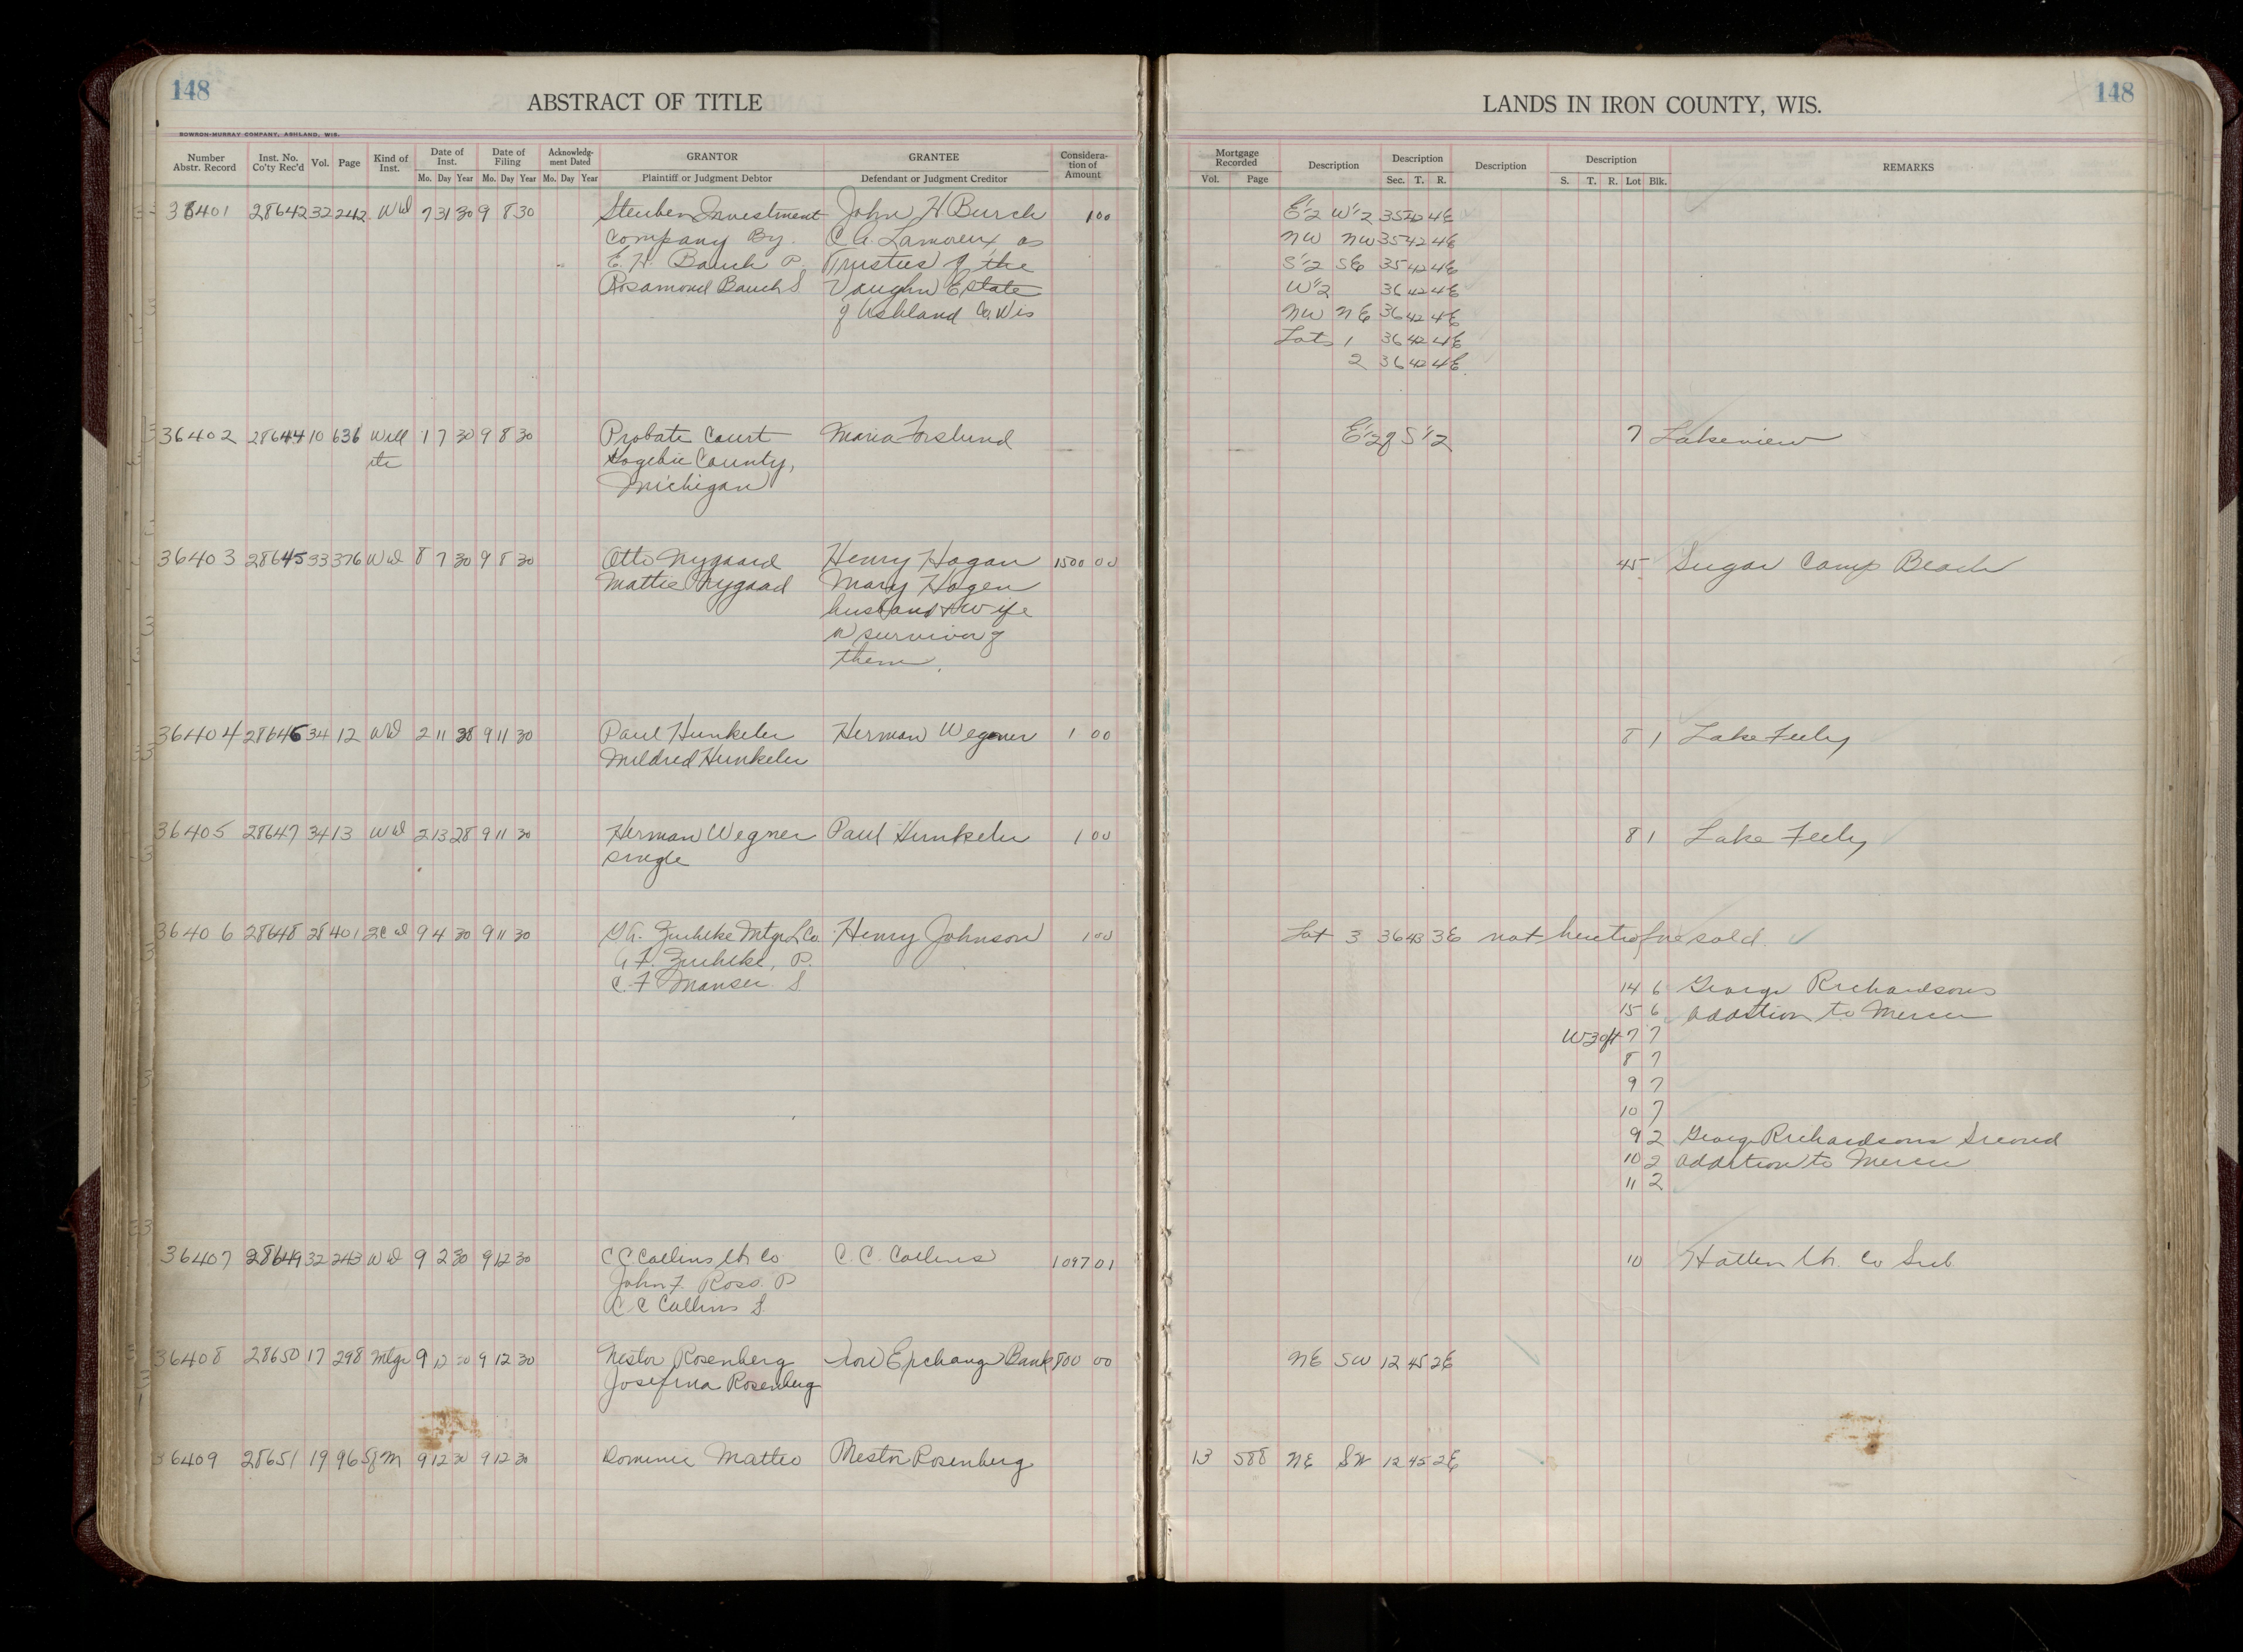 148
ABSTRACT OF TITLE
LANDS IN IRON COUNTY, WIS.
148
BOWRON-MURRAY COMPANY, ASHLAND, WIS.
Number Abstr. Record Inst. No. Co'ty Rec'd Vol. Page Kind of Inst. Date of Inst. Date of Filing Acknowledg-ment Dated GRANTOR GRANTEE Considera-tion of Amount Mortgage Recorded Description Description Description Description REMARKS
Mo. Day Year Mo. Day Year Mo. Day Year Plaintiff or Judgment Debtor Defendant or Judgment Creditor Vol. Page Sec. T. R. S. T. R. Lot Blk.
36401 28642 32 242 WD 7 31 30 9 8 30 Steuben Investment John H Burch 1 00 E½ W½ 35 42 4E
Company By C A. Lamoreux as NW NW 35 42 4E
E. H. Bauch P. Trustees of the S½ SE 35 42 4E
Rosamond Bauch S. Vaughn Estate W½ 36 42 4E
of Ashland Co. Wis NW NE 36 42 4E
Lots 1 36 42 4E
2 36 42 4E
36402 28644 10 636 Will 1 7 30 9 8 30 Probate Court Maria Forslund E½ of S½ 7 Lakeview
etc Gogebic County,
Michigan
36403 28645 33 376 WD 8 7 30 9 8 30 Otto Nygaard Henry Hagan 1500 00 45 Sugar Camp Beach
Mattie Nygaard Mary Hagen
husband & wife
or survivor of
them.
36404 28646 34 12 WD 2 11 28 9 11 30 Paul Hunkeler Herman Wegner 1 00 8 1 Lake Feely
Mildred Hunkeler
36405 28647 34 13 WD 2 13 28 9 11 30 Herman Wegner Paul Hunkeler 1 00 8 1 Lake Feely
single
36406 28648 28 401 2C D 9 4 30 9 11 30 G A. Zuehlke Mtge L Co. Henry Johnson 1 00 Lot 3 36 43 3E not heretofore sold.
A. F. Zuehlke, P.
C. F Manser S. 14 6 George Richardsons
15 6 addition to Mercer
W 30 ft 7 7
8 7
9 7
10 7
9 2 George Richardsons Second
10 2 addition to Mercer
11 2
36407 28649 32 243 WD 9 2 30 9 12 30 C C Collins Lbr Co. C. C. Collins 1097 01 10 Hatten Lbr. Co Sub.
John F. Ross. P
C C Collins S.
36408 28650 17 298 Mtge 9 12 30 9 12 30 Nestor Rosenberg Iron Exchange Bank 800 00 NE SW 12 45 2E
Josefina Rosenberg
36409 28651 19 96 Sf M 9 12 30 9 12 30 Dominic Matteo Nestor Rosenberg 13 588 NE SW 12 45 2E